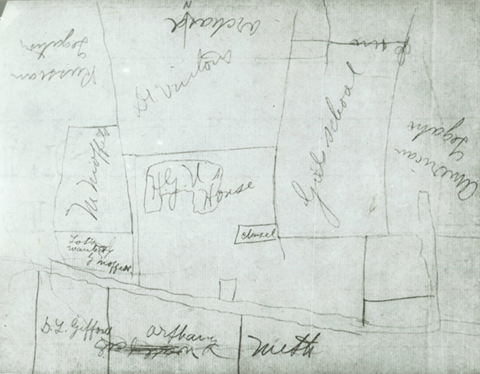 N
orchard
Russian
Legation
Dr Vinton
Girl school
American
Legation
Mr Moffett
H. G. U.
House
chapel
Lots
wanted
by Moffett
D. L. Gifford
orphan
Meth